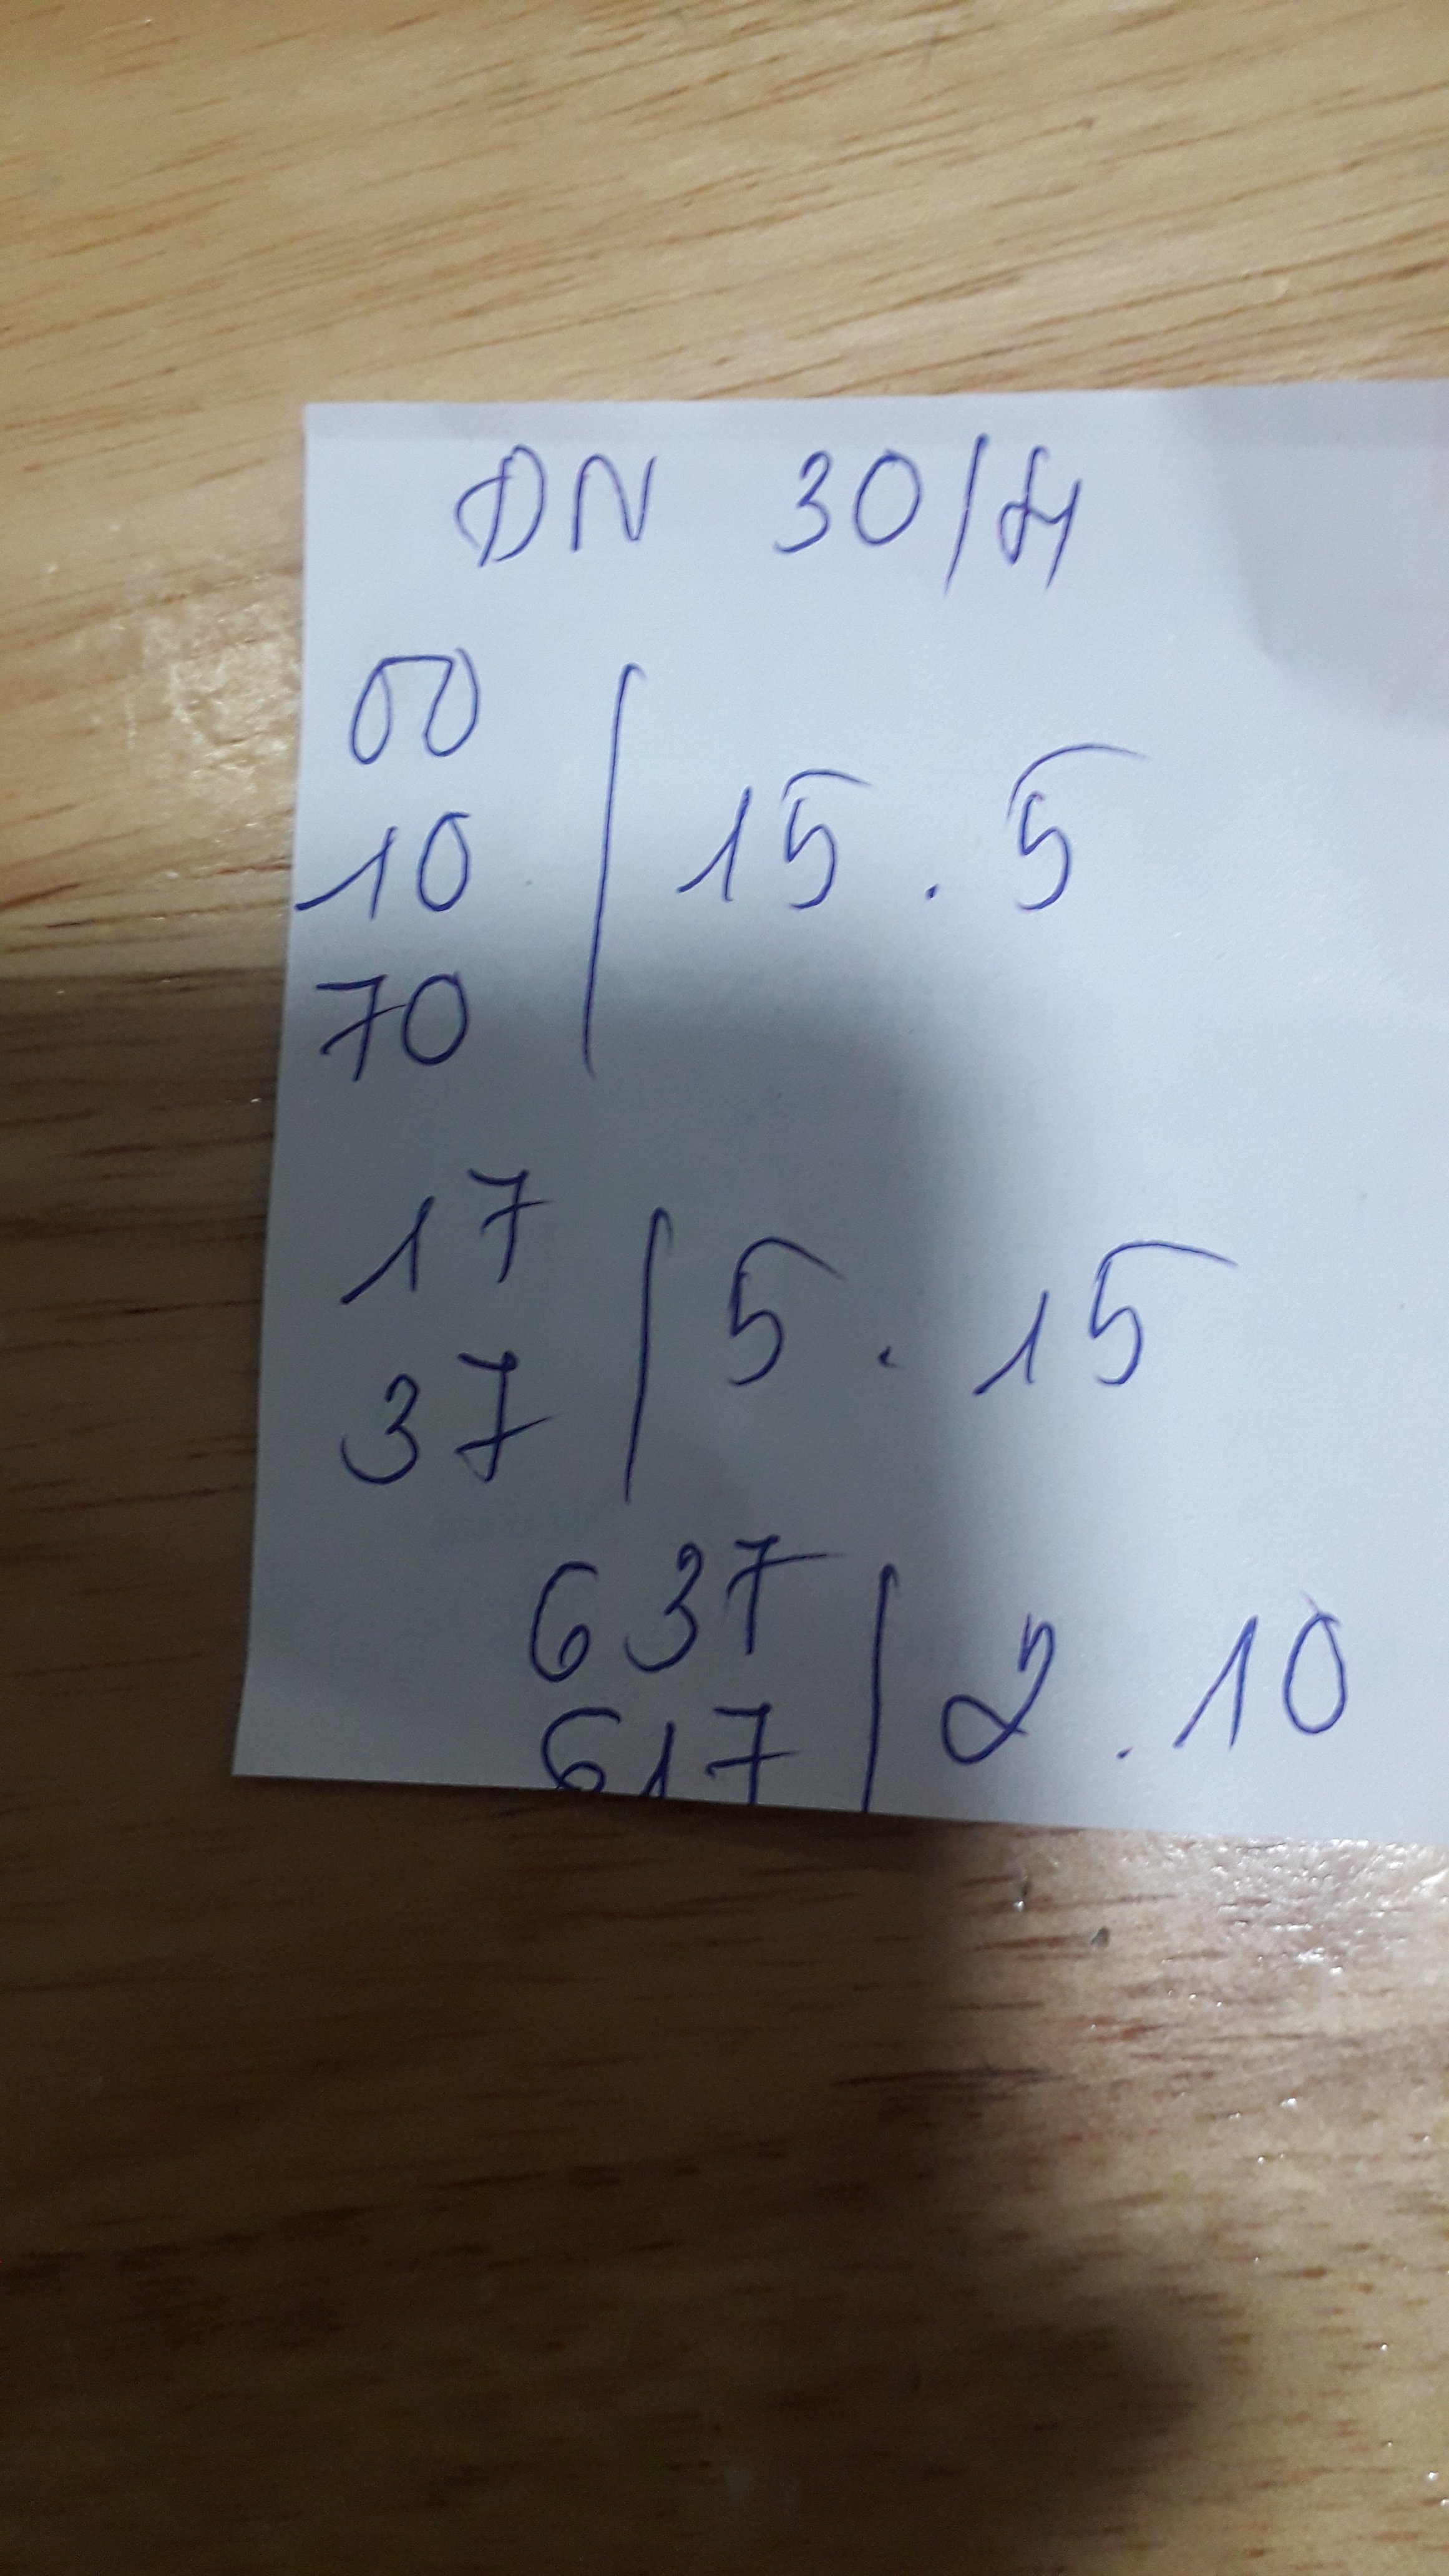 ĐN 30/4
00
10 | 15 . 5
70
17
37 | 5 . 15
637
617 | 2 . 10